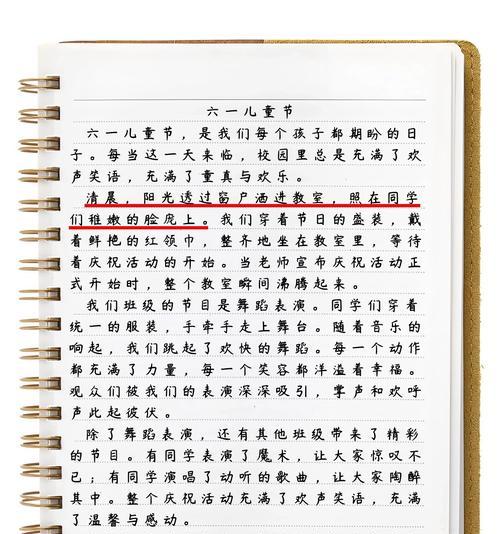 六一儿童节
六一儿童节，是我们每个孩子都期盼的日
子。每当这一天来临，校园里总是充满了欢
声笑语，充满了童真与欢乐。
清晨，阳光透过窗户洒进教室，照在同学
们稚嫩的脸庞上。我们穿着节日的盛装，戴
着鲜艳的红领巾，整齐地坐在教室里，等待
着庆祝活动的开始。当老师宣布庆祝活动正
式开始时，整个教室瞬间沸腾起来。
我们班级的节目是舞蹈表演。同学们穿着
统一的服装，手牵手走上舞台。随着音乐的
响起，我们跳起了欢快的舞蹈。每一个动作
都充满了力量，每一个笑容都洋溢着幸福。
观众们被我们的表演深深吸引，掌声和欢呼
声此起彼伏。
除了舞蹈表演，还有其他班级带来了精彩
的节目。有同学表演了魔术，让大家惊叹不
已；有同学演唱了动听的歌曲，让大家陶醉
其中。整个庆祝活动充满了欢声笑语，充满
了温馨与感动。